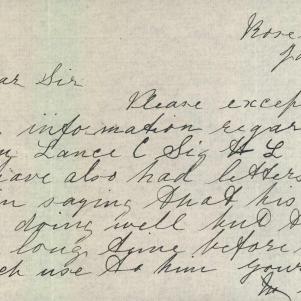 Rose
Ja
ar Sir
Please excep
information regar
Lance C Sig H L
ave also had letters
n saying that his
doing well but t
long time before
ch use to him your